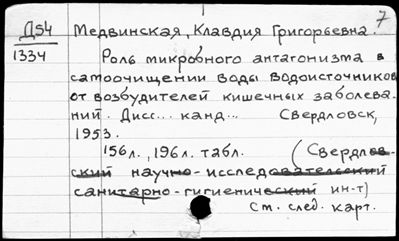 7
Д54
1334
Медвинская, Клавдия Григорьевна.
Роль микробного антагонизма в
самоочищении воды водоисточников
от возбудителей кишечных заболева-
ний. Дисс... канд... Свердловск,
1953.
156л., 196л. табл. (Свердлов-
ский научно-исследовательский
санитарно-гигиенический ин-т)
См. след. карт.